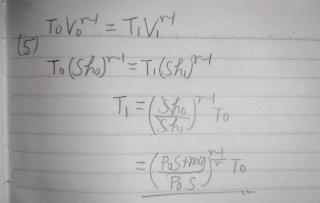 T₀V₀^r-1 = T₁V₁^r-1
(5)
T₀(Sh₀)^r-1 = T₁(Sh₁)^r-1
T₁ = (Sh₀/Sh₁)^r-1 T₀
= (P₀S+mg/P₀S)^r-1/r T₀